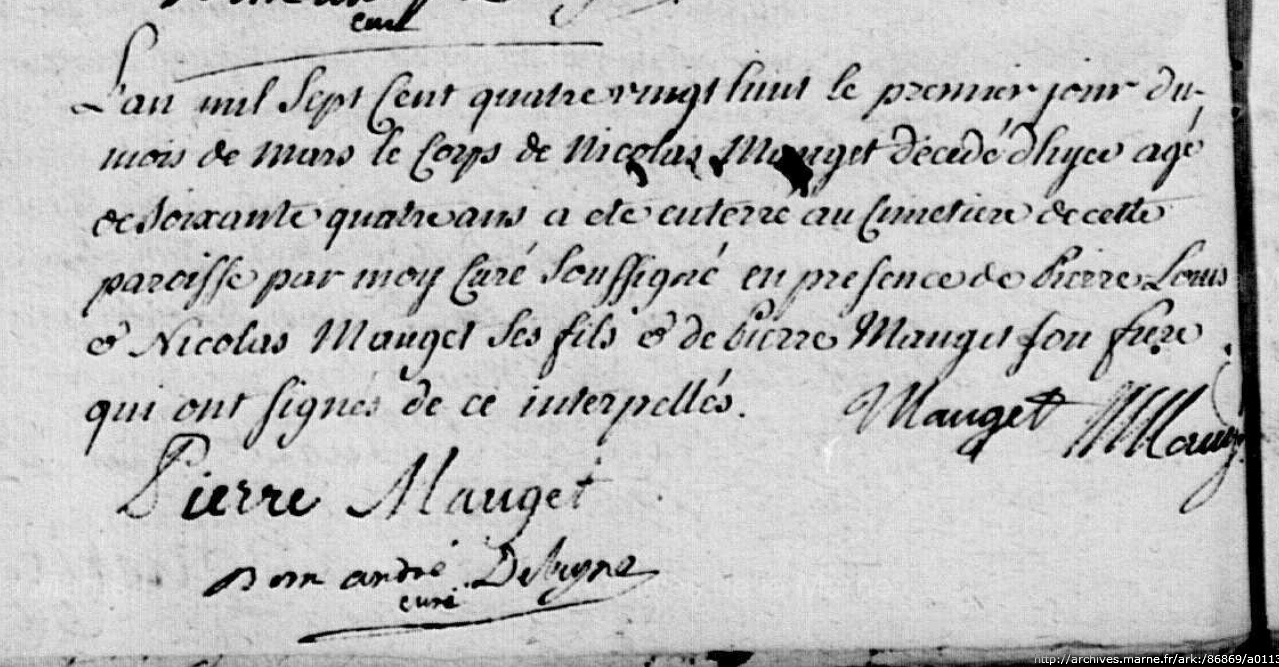 curé
L'an mil Sept Cent quatre vingt huit le premier jour du
mois de mars le Corps de Nicolas Mauget décédé d'hyer agé
de Soixante quatre ans a eté enterré au Cimetiere de cette
paroisse par moy Curé Soussigné en presence de Pierre Louis
& Nicolas Mauget Ses fils & de Pierre Mauget son frere
qui ont signés de ce interpellés. Mauget
Pierre Mauget
Dom andré
curé
http://archives.marne.fr/ark:/86869/a0113